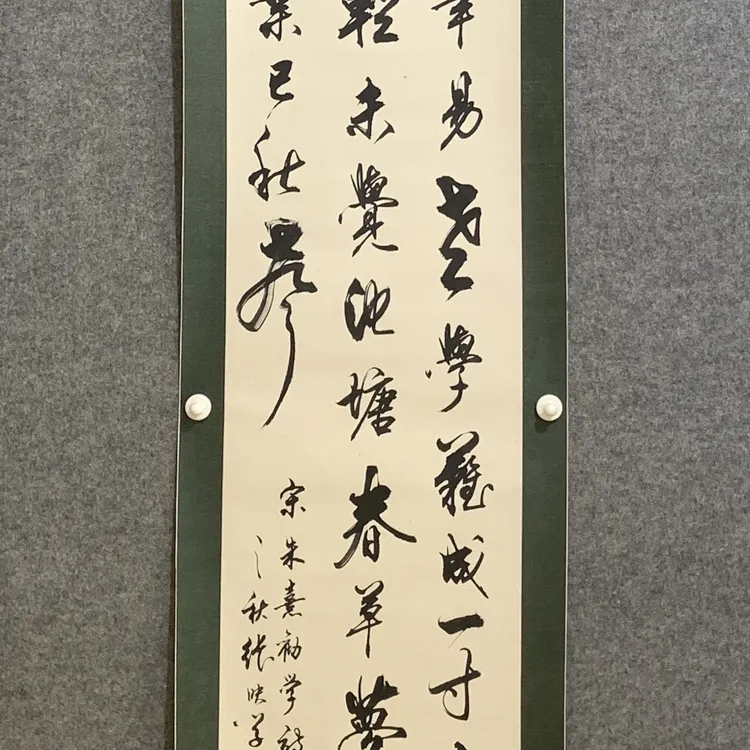 年易老學難成一寸
輕未覺池塘春草夢
葉已秋聲
宋朱熹勸学詩
之秋張映